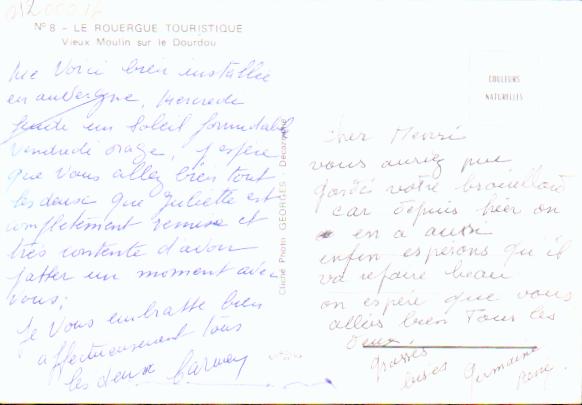 N° 8 - LE ROUERGUE TOURISTIQUE
Vieux Moulin sur le Dourdou
Me Voici bien installée
en auvergne, Mercredi
Jeudi un Soleil formidable
Vendredi orage, j'espère
que Vous allez bien tout
les deux que Juliette est
completement remise et
très contente d'avoir
passer un moment avec
vous;
Je Vous embrasse bien
affectueusement Tous
les deux
Cliché Photo GEORGES Decazeville
COULEURS
NATURELLES
Cher Henri
vous auriez pu
garder votre brouillard
car depuis hier on
en a aussi
enfin espérons qu'il
va refaire beau
on espère que vous
allez bien Tous les
deux.
Grosses
bises Germaine
René